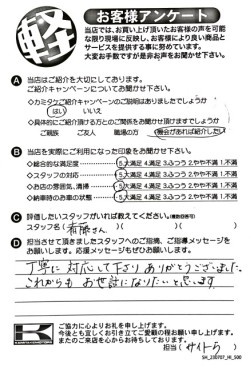 軽
お客様アンケート
当店では、お買い上げ頂いたお客様の声を可能
な限り現場に反映し、お客様により良い商品と
サービスを提供する事に努めています。
大変お手数ですが是非お声をお聞かせ下さい。
A 当店はご紹介を大切にしております。
ご紹介キャンペーンについてお聞かせ下さい。
◇カミタケご紹介キャンペーンのご説明はありましたでしょうか
はい いいえ
◇具体的にご紹介頂ける方とのご関係をお聞かせ頂けますでしょうか
ご親族 ご友人 職場の方 機会があれば紹介したい
B 当店を実際にご利用になった印象をお聞かせ下さい。
◇総合的な満足度 5.大満足 4.満足 3.ふつう 2.やや不満 1.不満
◇スタッフの対応 5.大満足 4.満足 3.ふつう 2.やや不満 1.不満
◇お店の雰囲気、清掃 5.大満足 4.満足 3.ふつう 2.やや不満 1.不満
◇納車時のお車の状態 5.大満足 4.満足 3.ふつう 2.やや不満 1.不満
C 評価したいスタッフがいれば教えてください。(複数回答可)
スタッフ名( 斉藤さん )
D 担当させて頂きましたスタッフへのご指摘、ご指導メッセージを
お願いします。応援メッセージもぜひお願いします。
丁寧に対応して下さりありがとうございました。
これからもお世話になりたいと思います
K
ご協力に心よりお礼を申し上げます。
今後とも宜しくお引き立てご愛顧の程お願い申し上げます。
またのご来店を心からお待ちしております。
担当( サイトウ )
SH_230707_HI_500